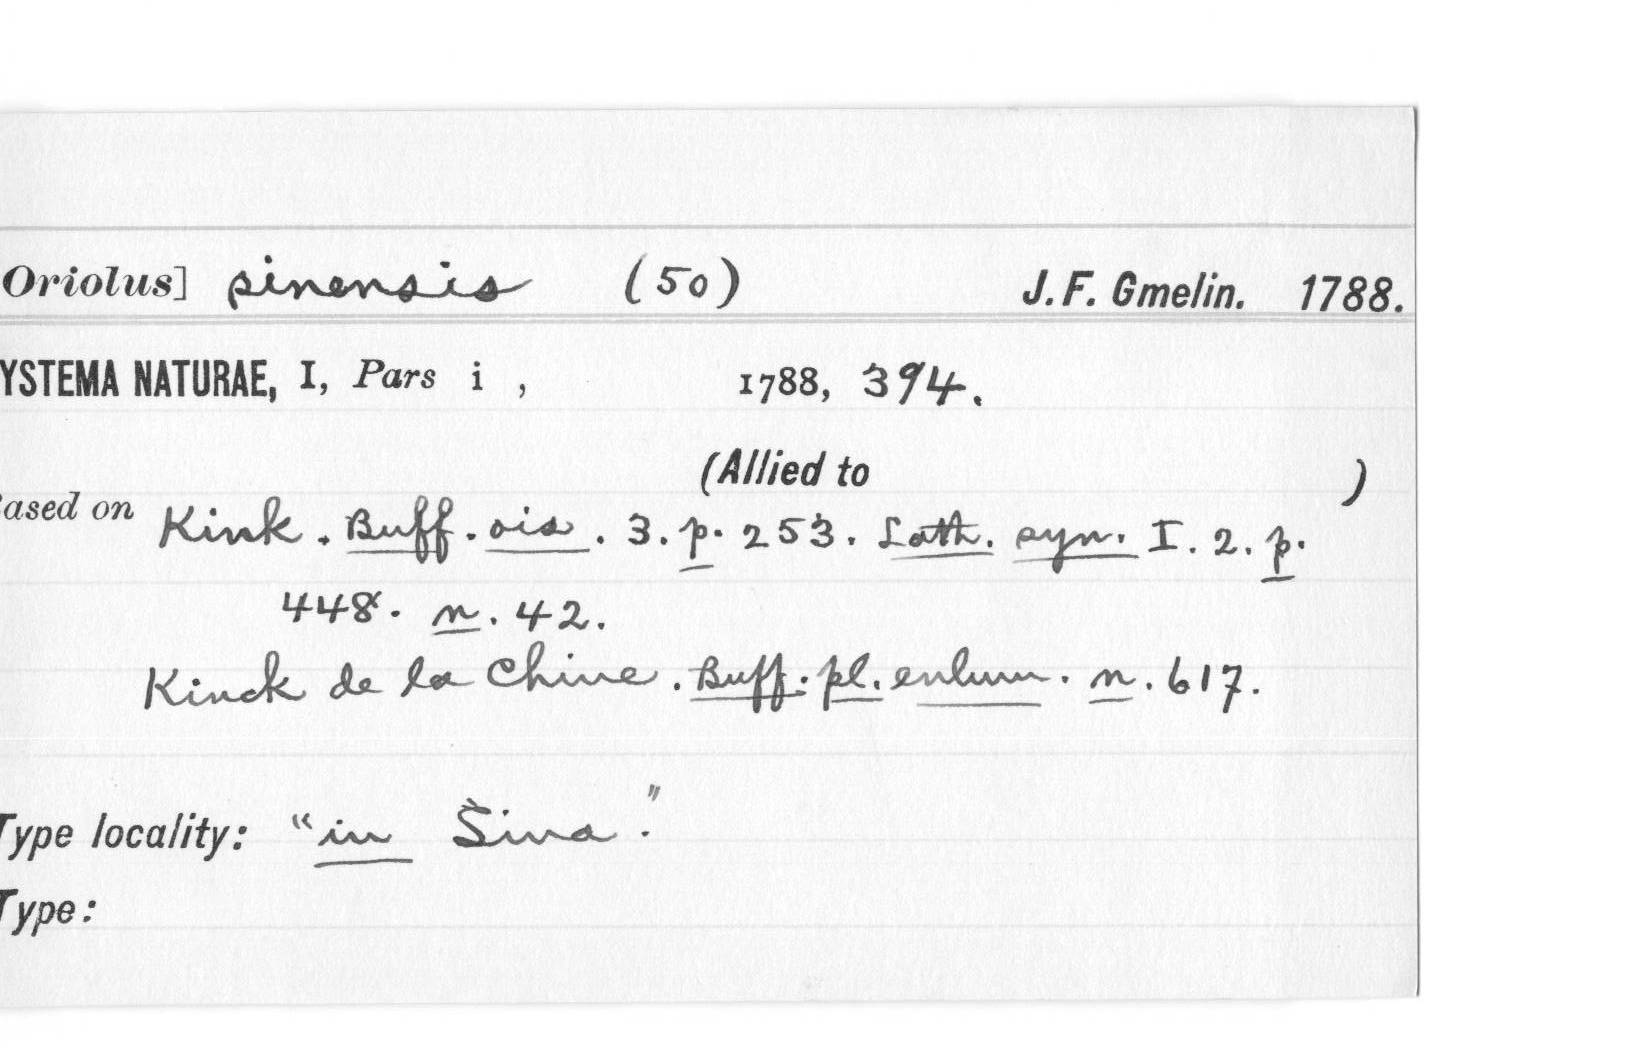 Oriolus] sinensis (50) J. F. Gmelin. 1788.
YSTEMA NATURAE, I, Pars i , 1788, 394.
(Allied to )
ased on Kink. Buff. ois. 3. p. 253. Lath. syn. I. 2. p.
448. n. 42.
Kinck de la Chine. Buff. pl. enlum. n. 617.
Type locality: "in Sina."
Type: